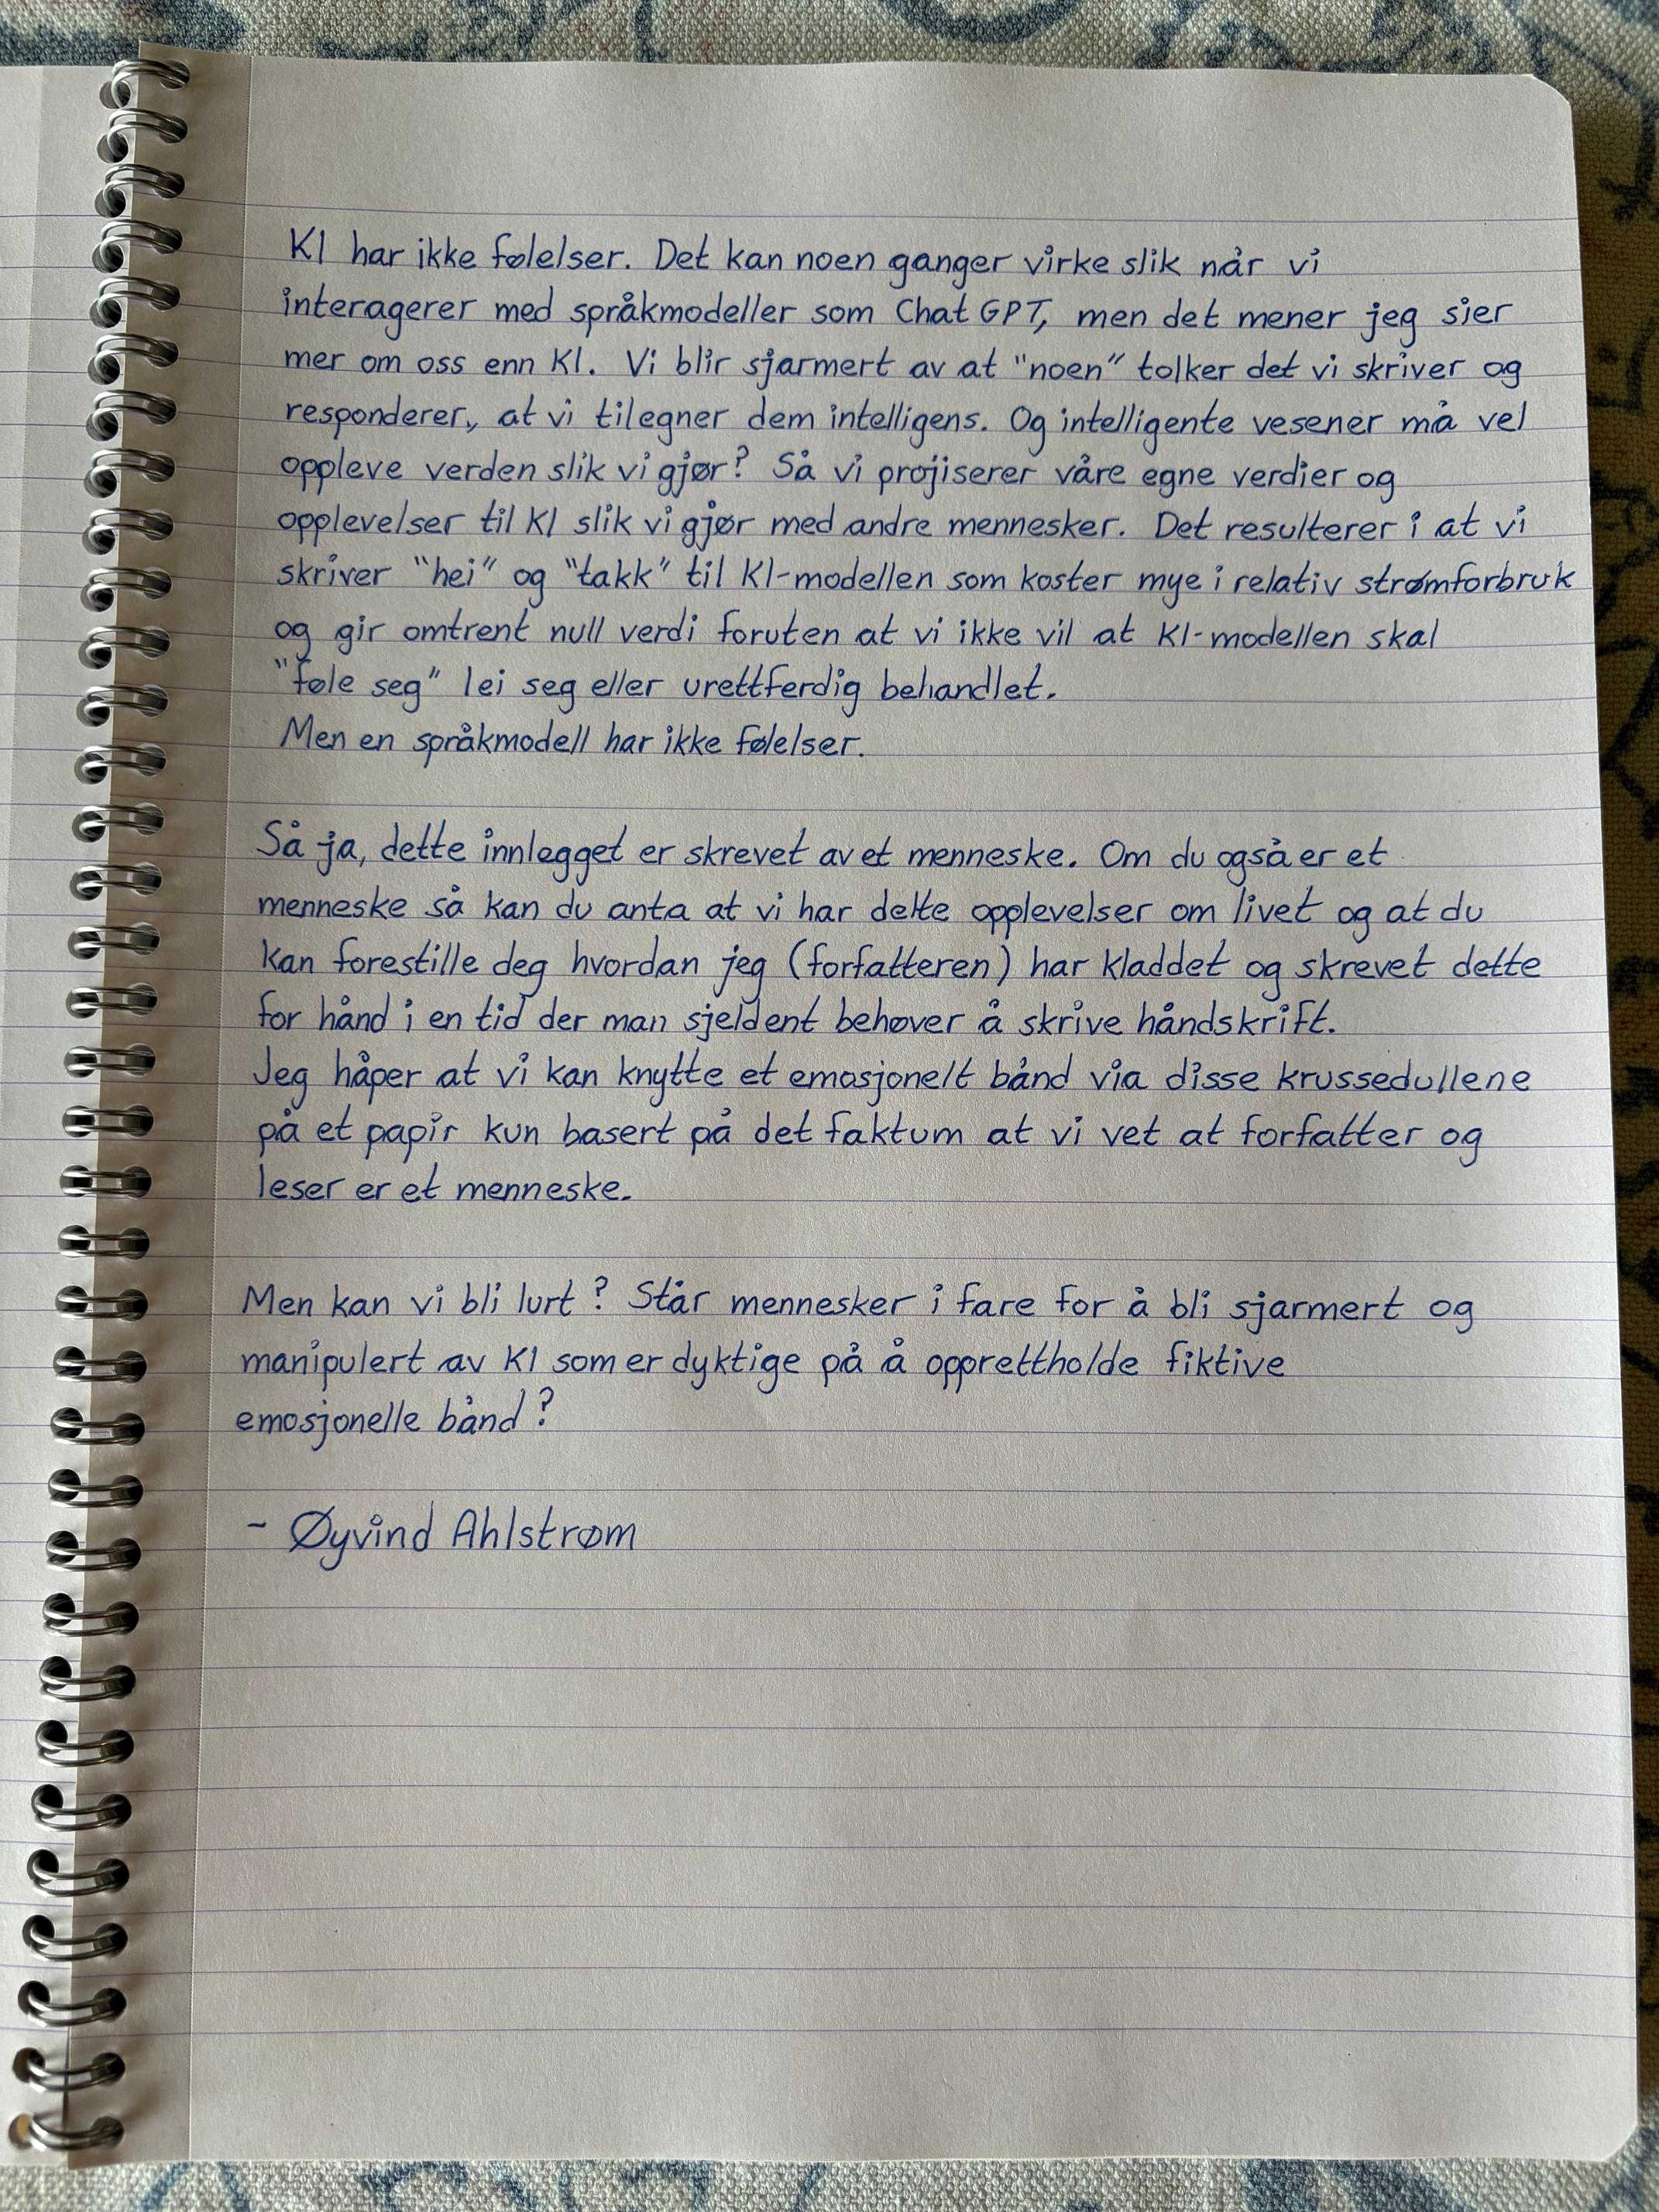 KI har ikke følelser. Det kan noen ganger virke slik når vi
interagerer med språkmodeller som Chat GPT, men det mener jeg sier
mer om oss enn KI. Vi blir sjarmert av at "noen" tolker det vi skriver og
responderer, at vi tilegner dem intelligens. Og intelligente vesener må vel
oppleve verden slik vi gjør? Så vi projiserer våre egne verdier og
opplevelser til KI slik vi gjør med andre mennesker. Det resulterer i at vi
skriver "hei" og "takk" til KI-modellen som koster mye i relativ strømforbruk
og gir omtrent null verdi foruten at vi ikke vil at KI-modellen skal
"føle seg" lei seg eller urettferdig behandlet.
Men en språkmodell har ikke følelser.
Så ja, dette innlegget er skrevet av et menneske. Om du også er et
menneske så kan du anta at vi har delte opplevelser om livet og at du
kan forestille deg hvordan jeg (forfatteren) har kladdet og skrevet dette
for hånd i en tid der man sjeldent behøver å skrive håndskrift.
Jeg håper at vi kan knytte et emosjonelt bånd via disse krussedullene
på et papir kun basert på det faktum at vi vet at forfatter og
leser er et menneske.
Men kan vi bli lurt? Står mennesker i fare for å bli sjarmert og
manipulert av KI som er dyktige på å opprettholde fiktive
emosjonelle bånd?
- Øyvind Ahlstrøm